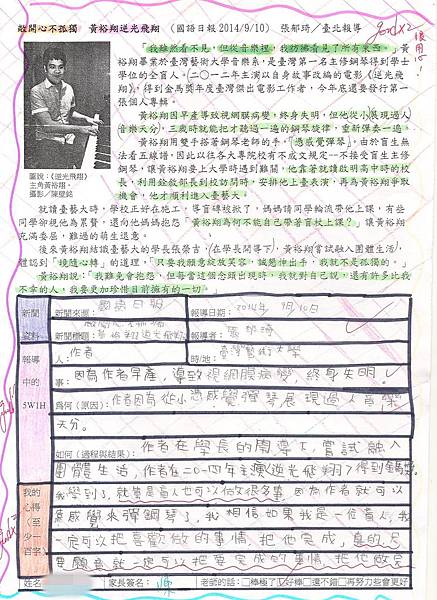 敞開心不孤獨 黃裕翔逆光飛翔 (國語日報 2014/9/10) 張郁琦／臺北報導
「我雖然看不見，但從音樂裡，我彷彿看見了所有東西。」黃
裕翔畢業於臺灣藝術大學音樂系，是臺灣第一名主修鋼琴得到學士
學位的全盲人，二〇一二年主演以自身故事改編的電影《逆光飛
翔》，得到金馬獎年度臺灣傑出電影工作者，今年底還要發行第一
張個人專輯。
黃裕翔因早產導致視網膜病變，終身失明，但他從小展現過人
音樂天分，三歲時就能把才聽過一遍的鋼琴旋律，重新彈奏一遍。
黃裕翔用雙手搭著鋼琴老師的手，「憑感覺彈琴」，由於盲生無
法看五線譜，因此以往各大專院校有不成文規定--不接受盲生主修
鋼琴，讓黃裕翔要上大學時遇到難關，他靠著就讀啟明高中時的校
長，利用銓敘部長到校訪問時，安排他上臺表演，再為黃裕翔爭取
機會，他才順利進入臺藝大。
圖說：《逆光飛翔》
主角黃裕翔。
攝影/陳塱銘
就讀臺藝大時，學校正好在施工，導盲磚被掀了，媽媽請同學輪流帶他上課，有些
同學卻視他為累贅，還向他媽媽抱怨「黃裕翔為何不能自己帶著盲杖上課？」讓黃裕翔
充滿委屈，難過的萌生退意。
後來黃裕翔結識臺藝大的學長張榮吉，(在學長開導下)，黃裕翔嘗試融入團體生活，
體認到「境隨心轉」的道理，「只要我願意綻放笑容，誠懇伸出手，我就不是孤獨的。」
黃裕翔說：「我難免會抱怨，但每當這個念頭出現時，我就對自己說，還有許多比我
不幸的人，我要更加珍惜目前擁有的一切。」
新聞 新聞來源： 國語日報 報導日期： 2014年 9月10日
資料 新聞標題： 黃裕翔逆光飛翔 報導者： 張郁琦
報導 人： 作者 時/地： 臺灣藝術大學
中的 事： 因為作者早產，導致視網膜病變，終身失明。
5W1H 為何(原因)： 作者因為從小憑感覺彈琴展現過人音樂
天分。
如何(過程與結果)： 作者在學長的開導下，嘗試融入
團體生活，作者在二〇一四年主演逆光飛翔
我的 我學到了，就算是盲人也可以做很多事，因為作者就可以
心得 憑感覺來彈鋼琴了，我相信如果我是一位盲人，我
(至少一百字) 一定可以把喜歡做的事情，把他完成，真的，只
要願意就一定可以把要完成的事情，把他做完
姓名 家長簽名： 老師的話：□棒極了 □好棒 □還不錯 □再努力些會更好